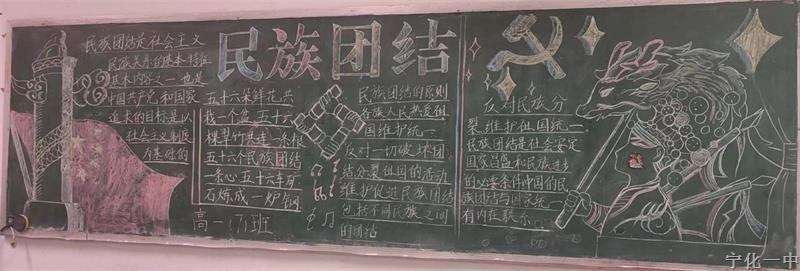 民族团结
民族团结是社会主义
民族关系的基本特征
其本内容之一也是
中国共产党和国家
追求的目标是以
社会主义制度
为基对的
五十六朵鲜花共
栽一个盆五十六
棵翠竹共连一条根
五十六个民族团结
一条心五十六车矿
石炼成一炉钢
高一(7)班
民族团结的原则
各族人民热爱祖
国维护统一
反对一切破坏团
结分裂祖国的活动
维护促进民族团结
包括不同民族之间
的团结
反对民族分
裂维护祖国统一
民族团结是社会安定
国家昌盛和民族进步
的必要条件中国的民
族团结与国家统一
有内在联系
宁化一中